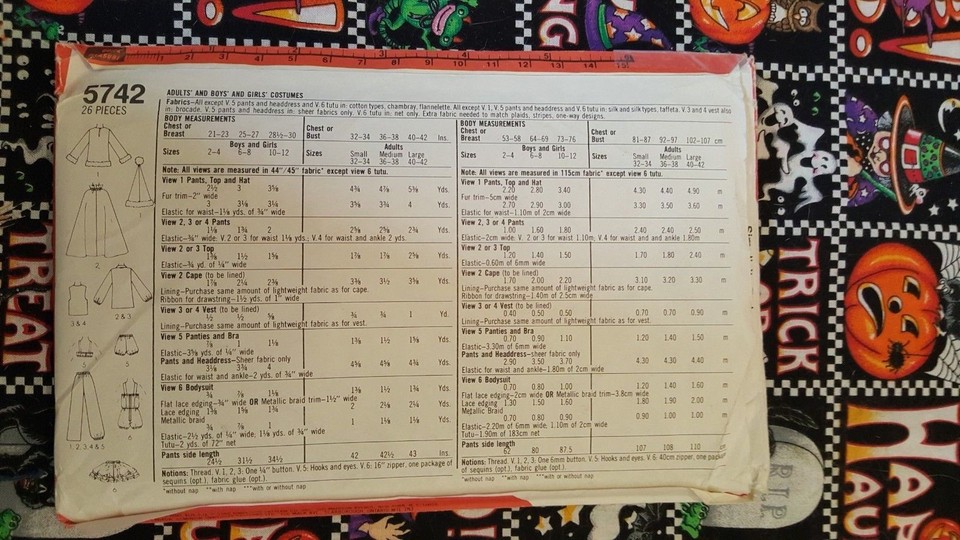 5742
26 PIECES
ADULTS' AND BOYS' AND GIRLS' COSTUMES
Fabrics—All except V. 5 pants and headdress and V. 6 tutu in: cotton types, chambray, flannelette. All except V. 1, V. 5 pants and headdress and V. 6 tutu in: silk and silk types, taffeta. V. 3 and 4 vest also
in: brocade. V. 5 pants and headdress in: sheer fabrics only. V. 6 tutu in: net only. Extra fabric needed to match plaids, stripes, one-way designs.
BODY MEASUREMENTS
Chest or Breast 21–23 25–27 28½–30 Chest or Bust 32–34 36–38 40–42 Ins.
Boys and Girls Adults
Sizes 2–4 6–8 10–12 Sizes Small 32–34 Medium 36–38 Large 40–42
Note: All views are measured in 44"/45" fabric* except view 6 tutu.
View 1 Pants, Top and Hat
2½ 3 3⅝ 4¾ 4⅞ 5⅜ Yds.
Fur trim—2" wide
3 3⅛ 3¼ 3⅝ 3¾ 4 Yds.
Elastic for waist—1⅛ yds. of ¾" wide
View 2, 3 or 4 Pants
1⅛ 1¾ 2 2⅝ 2⅝ 2¾ Yds.
Elastic—¾" wide: V. 2 or 3 for waist 1⅛ yds.; V.4 for waist and ankle 2 yds.
View 2 or 3 Top
1⅜ 1½ 1⅝ 1⅞ 1⅞ 2⅝ Yds.
Elastic—¾ yd. of ¼" wide
View 2 Cape (to be lined)
1⅞ 2¼ 2⅜ 3⅜ 3½ 3⅝ Yds.
Lining—Purchase same amount of lightweight fabric as for cape.
Ribbon for drawstring—1½ yds. of 1" wide
View 3 or 4 Vest (to be lined)
½ ½ ⅝ ¾ ¾ 1 Yd.
Lining—Purchase same amount of lightweight fabric as for vest.
View 5 Panties and Bra
⅞ 1 1⅛ 1⅜ 1½ 1⅝ Yds.
Elastic—3⅝ yds. of ¼" wide
Pants and Headdress—Sheer fabric only
3⅛ 3¾ 4 4⅝ 4⅝ 4¾ Yds.
Elastic for waist and ankle—2 yds. of ¾" wide
View 6 Bodysuit
¾ ⅞ 1⅛ 1⅜ 1½ 1¾ Yds.
Flat lace edging—¾" wide OR Metallic braid trim—1½" wide
Lace edging 1⅜ 1⅝ 1¾ 2 2⅛ 2¼ Yds.
Metallic braid
¾ ⅞ 1 1 1⅛ 1⅛ Yds.
Elastic—2½ yds. of ¼" wide; 1⅛ yds. of ¾" wide
Tutu—2 yds. of 72" net
Pants side length
24½ 31½ 34½ 42 42½ 43 Ins.
Notions: Thread. V. 1, 2, 3: One ¼" button. V. 5: Hooks and eyes. V. 6: 16" zipper, one package of
sequins (opt.), fabric glue (opt.).
*without nap **with nap ***with or without nap
BODY MEASUREMENTS
Chest or Breast 53–58 64–69 73–76 Chest or Bust 81–87 92–97 102–107 cm
Boys and Girls Adults
Sizes 2–4 6–8 10–12 Sizes Small 32–34 Medium 36–38 Large 40–42
Note: All views are measured in 115cm fabric* except view 6 tutu.
View 1 Pants, Top and Hat
2.20 2.80 3.40 4.30 4.40 4.90 m
Fur trim—5cm wide
2.70 2.90 3.00 3.30 3.50 3.60 m
Elastic for waist—1.10m of 2cm wide
View 2, 3 or 4 Pants
1.00 1.60 1.80 2.40 2.40 2.50 m
Elastic—2cm wide: V. 2 or 3 for waist 1.10m; V. 4 for waist and ankle 1.80m
View 2 or 3 Top
1.20 1.40 1.50 1.70 1.80 2.40 m
Elastic—0.60m of 6mm wide
View 2 Cape (to be lined)
1.70 2.00 2.20 3.10 3.20 3.30 m
Lining—Purchase same amount of lightweight fabric as for cape.
Ribbon for drawstring—1.40m of 2.5cm wide
View 3 or 4 Vest (to be lined)
0.40 0.50 0.50 0.70 0.70 0.90 m
Lining—Purchase same amount of lightweight fabric as for vest.
View 5 Panties and Bra
0.70 0.90 1.10 1.20 1.40 1.50 m
Elastic—3.30m of 6mm wide
Pants and Headdress—sheer fabric only
2.90 3.50 3.70 4.30 4.30 4.40 m
Elastic for waist and ankle—1.80m of 2cm wide
View 6 Bodysuit
0.70 0.80 1.00 1.20 1.40 1.60 m
Flat lace edging—2cm wide OR Metallic braid trim—3.8cm wide
Lace edging 1.30 1.50 1.60 1.80 1.90 2.00 m
Metallic Braid
0.70 0.80 0.90 0.90 1.00 1.00 m
Elastic—2.20m of 6mm wide; 1.10m of 2cm wide
Tutu—1.90m of 183cm net
Pants side length
62 80 87.5 107 108 110 cm
Notions: Thread. V. 1, 2, 3: One 6mm button. V. 5: Hooks and eyes. V. 6: 40cm zipper, one package
of sequins (opt.), fabric glue (opt.).
*without nap **with nap ***with or without nap
2
3 & 4
2 & 3
5
5
1, 2, 3, 4 & 5
6
6
TREAT
TRICK
RIP